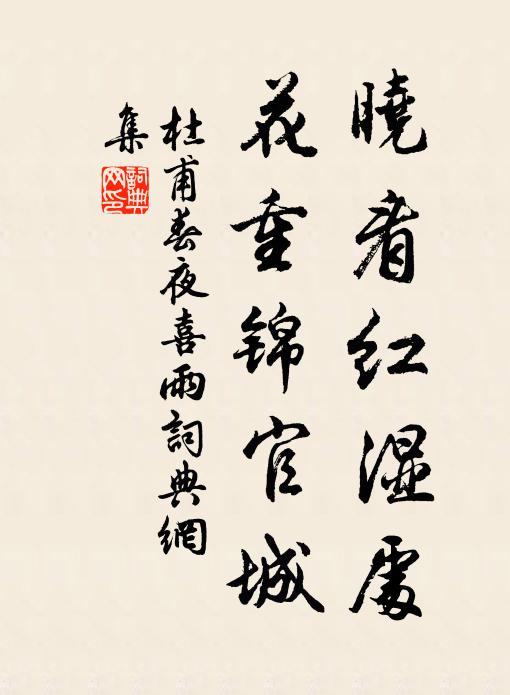 曉看紅濕處
花重錦官城
杜甫春夜喜雨詞典網
集
詞典網印